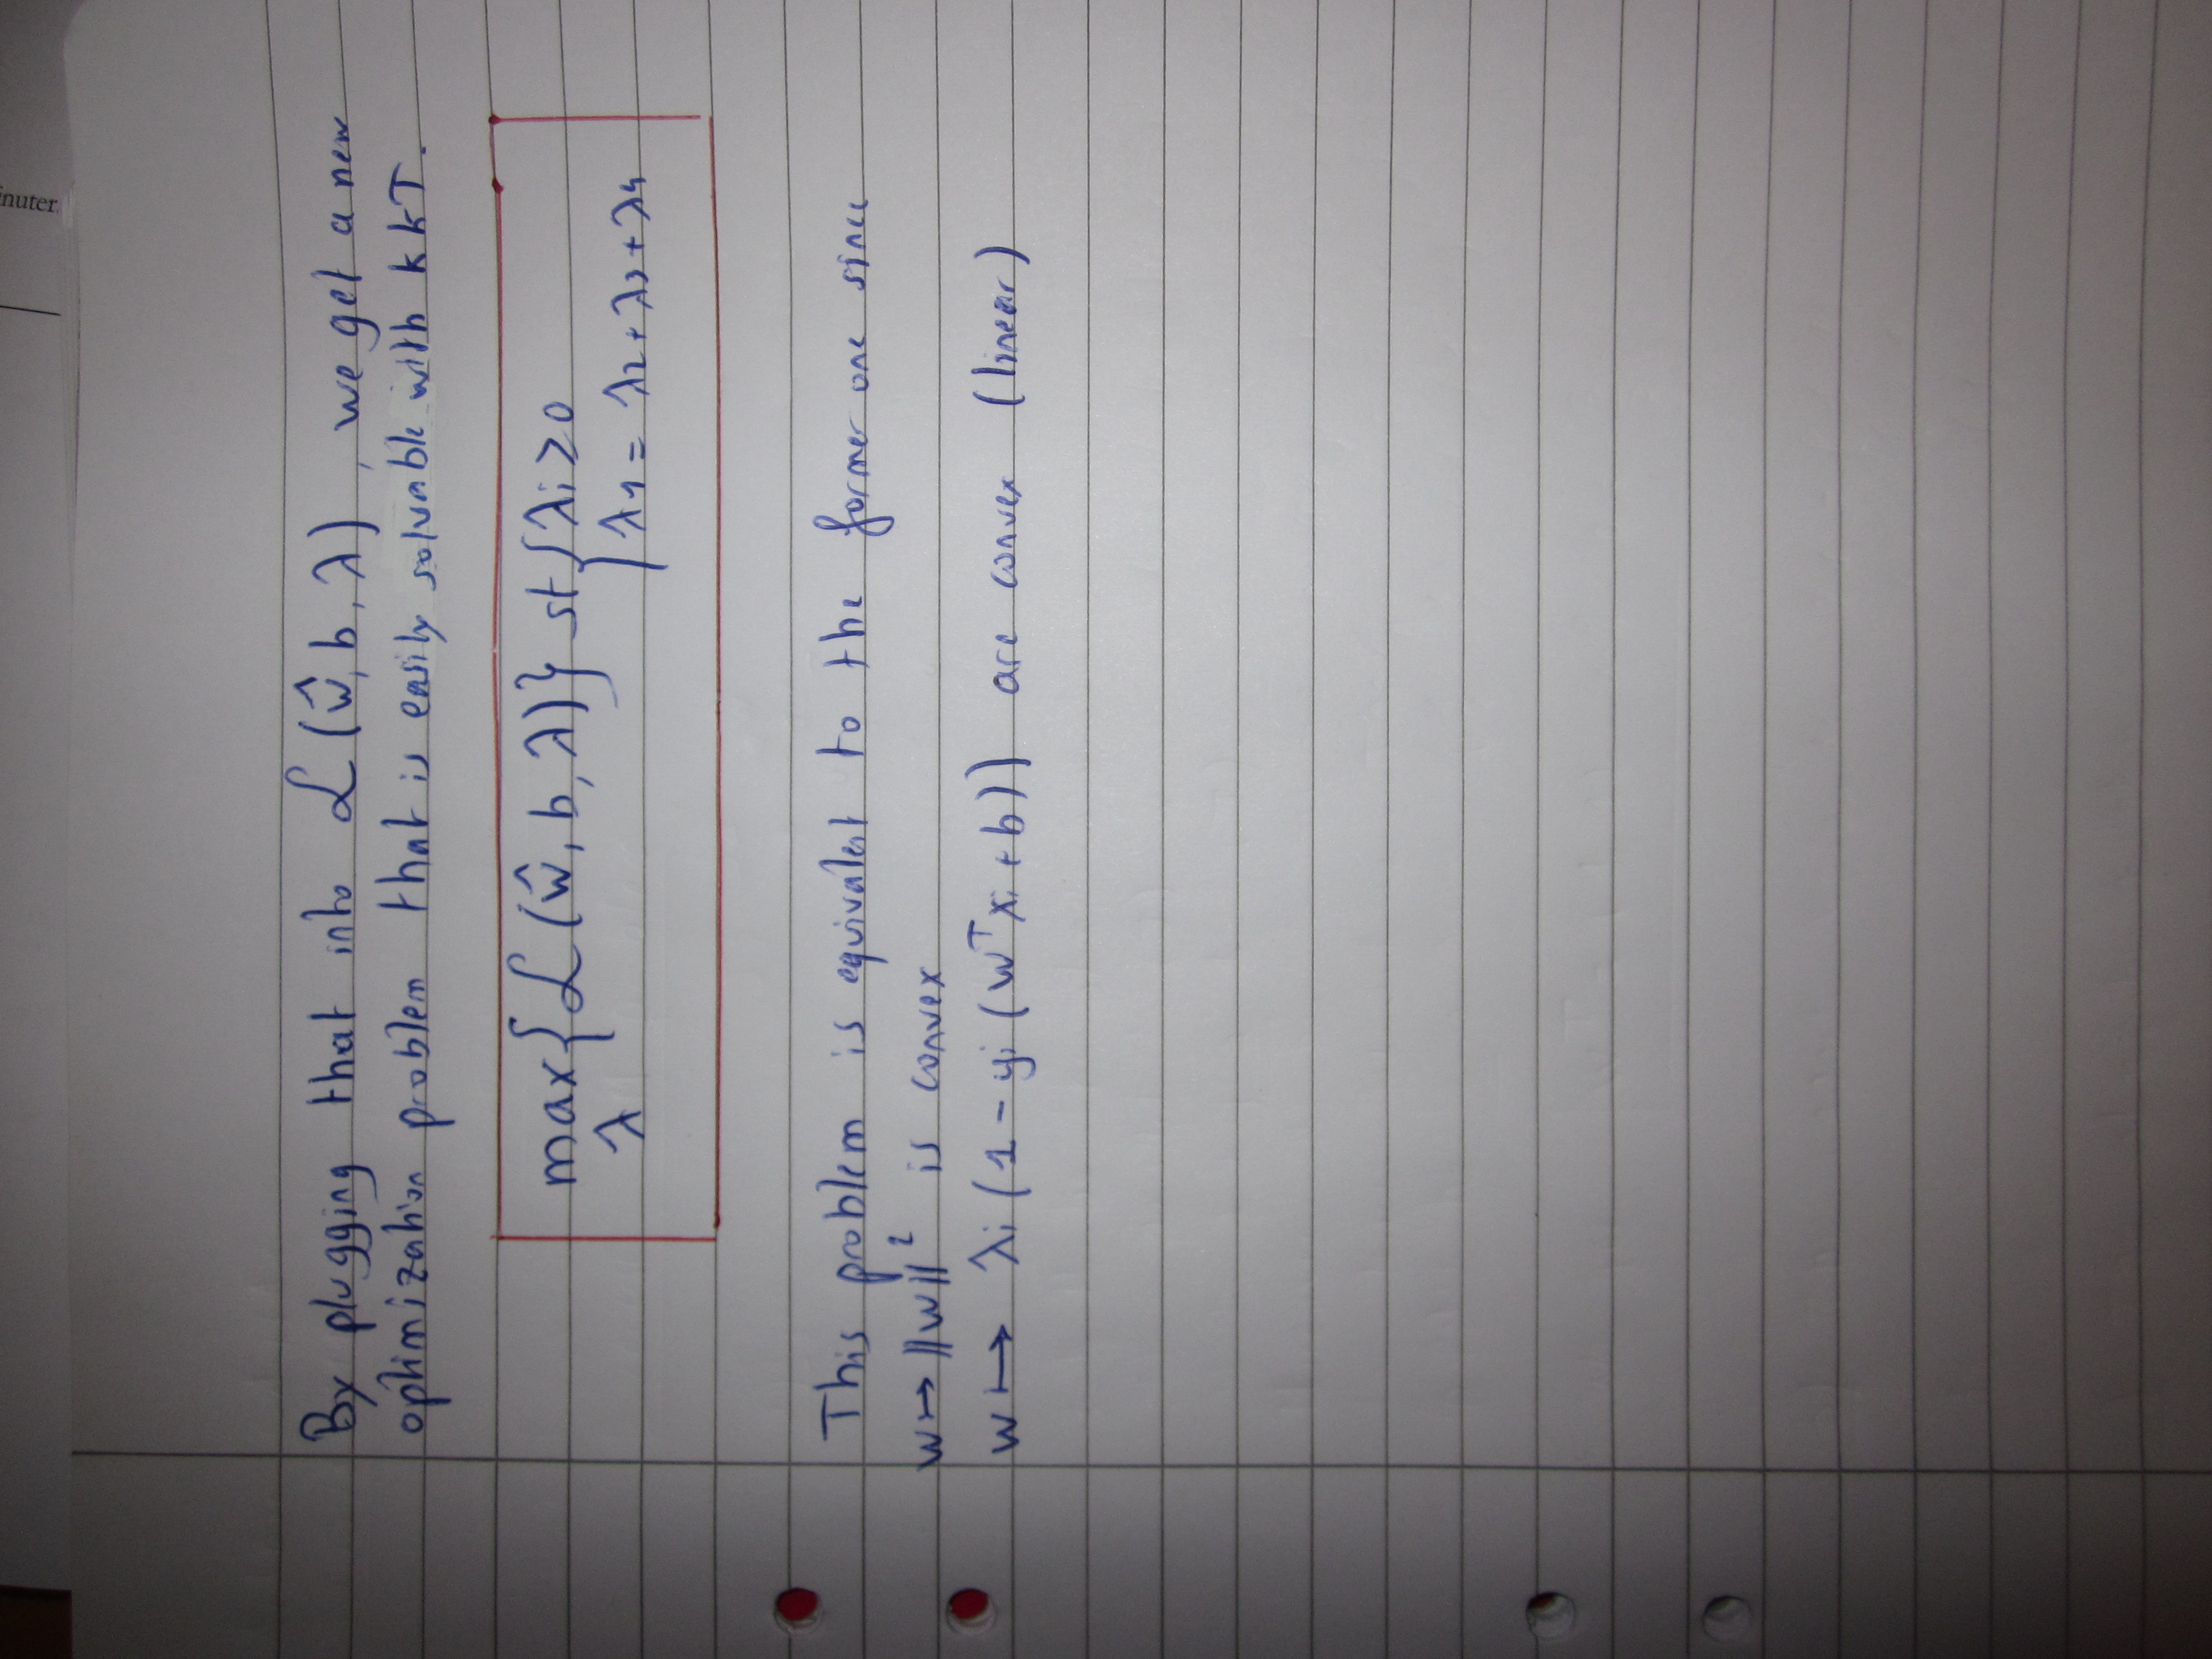 inuter.
By plugging that into ℒ(ŵ, b, λ), we get a new
optimization problem that is easily solvable with KKT.
max{ℒ(ŵ, b, λ)} st { λi ≥ 0
λ λ1 = λ2 + λ3 + λ4
This problem is equivalent to the former one since
w ↦ ||w||² is convex
w ↦ λi (1 - yi (wᵀxi + b)) are convex (linear)